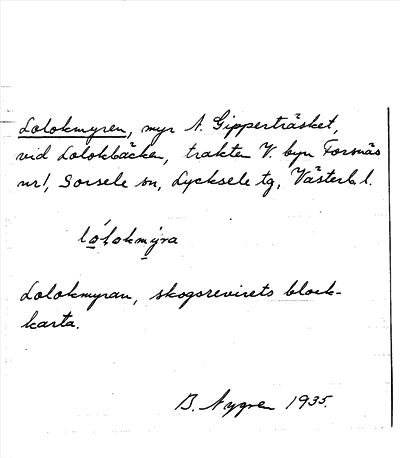 Lolokmyren, myr N. Gipperträsket,
vid Lolokbäcken, trakten V. byn Forsnäs
nr 1, Sorsele sn, Lycksele tg, Västerb. l.
ló̱lokmy̱ra
Lolokmyran, skogsrevirets block-
karta.
B. Nygren 1935.